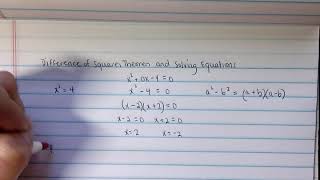 Difference of Squares Theorem and Solving Equations
x² + 0x - 4 = 0
x² = 4
x² - 4 = 0
a² - b² = (a+b)(a-b)
(x-2)(x+2) = 0
x-2=0 x+2=0
x=2 x=-2